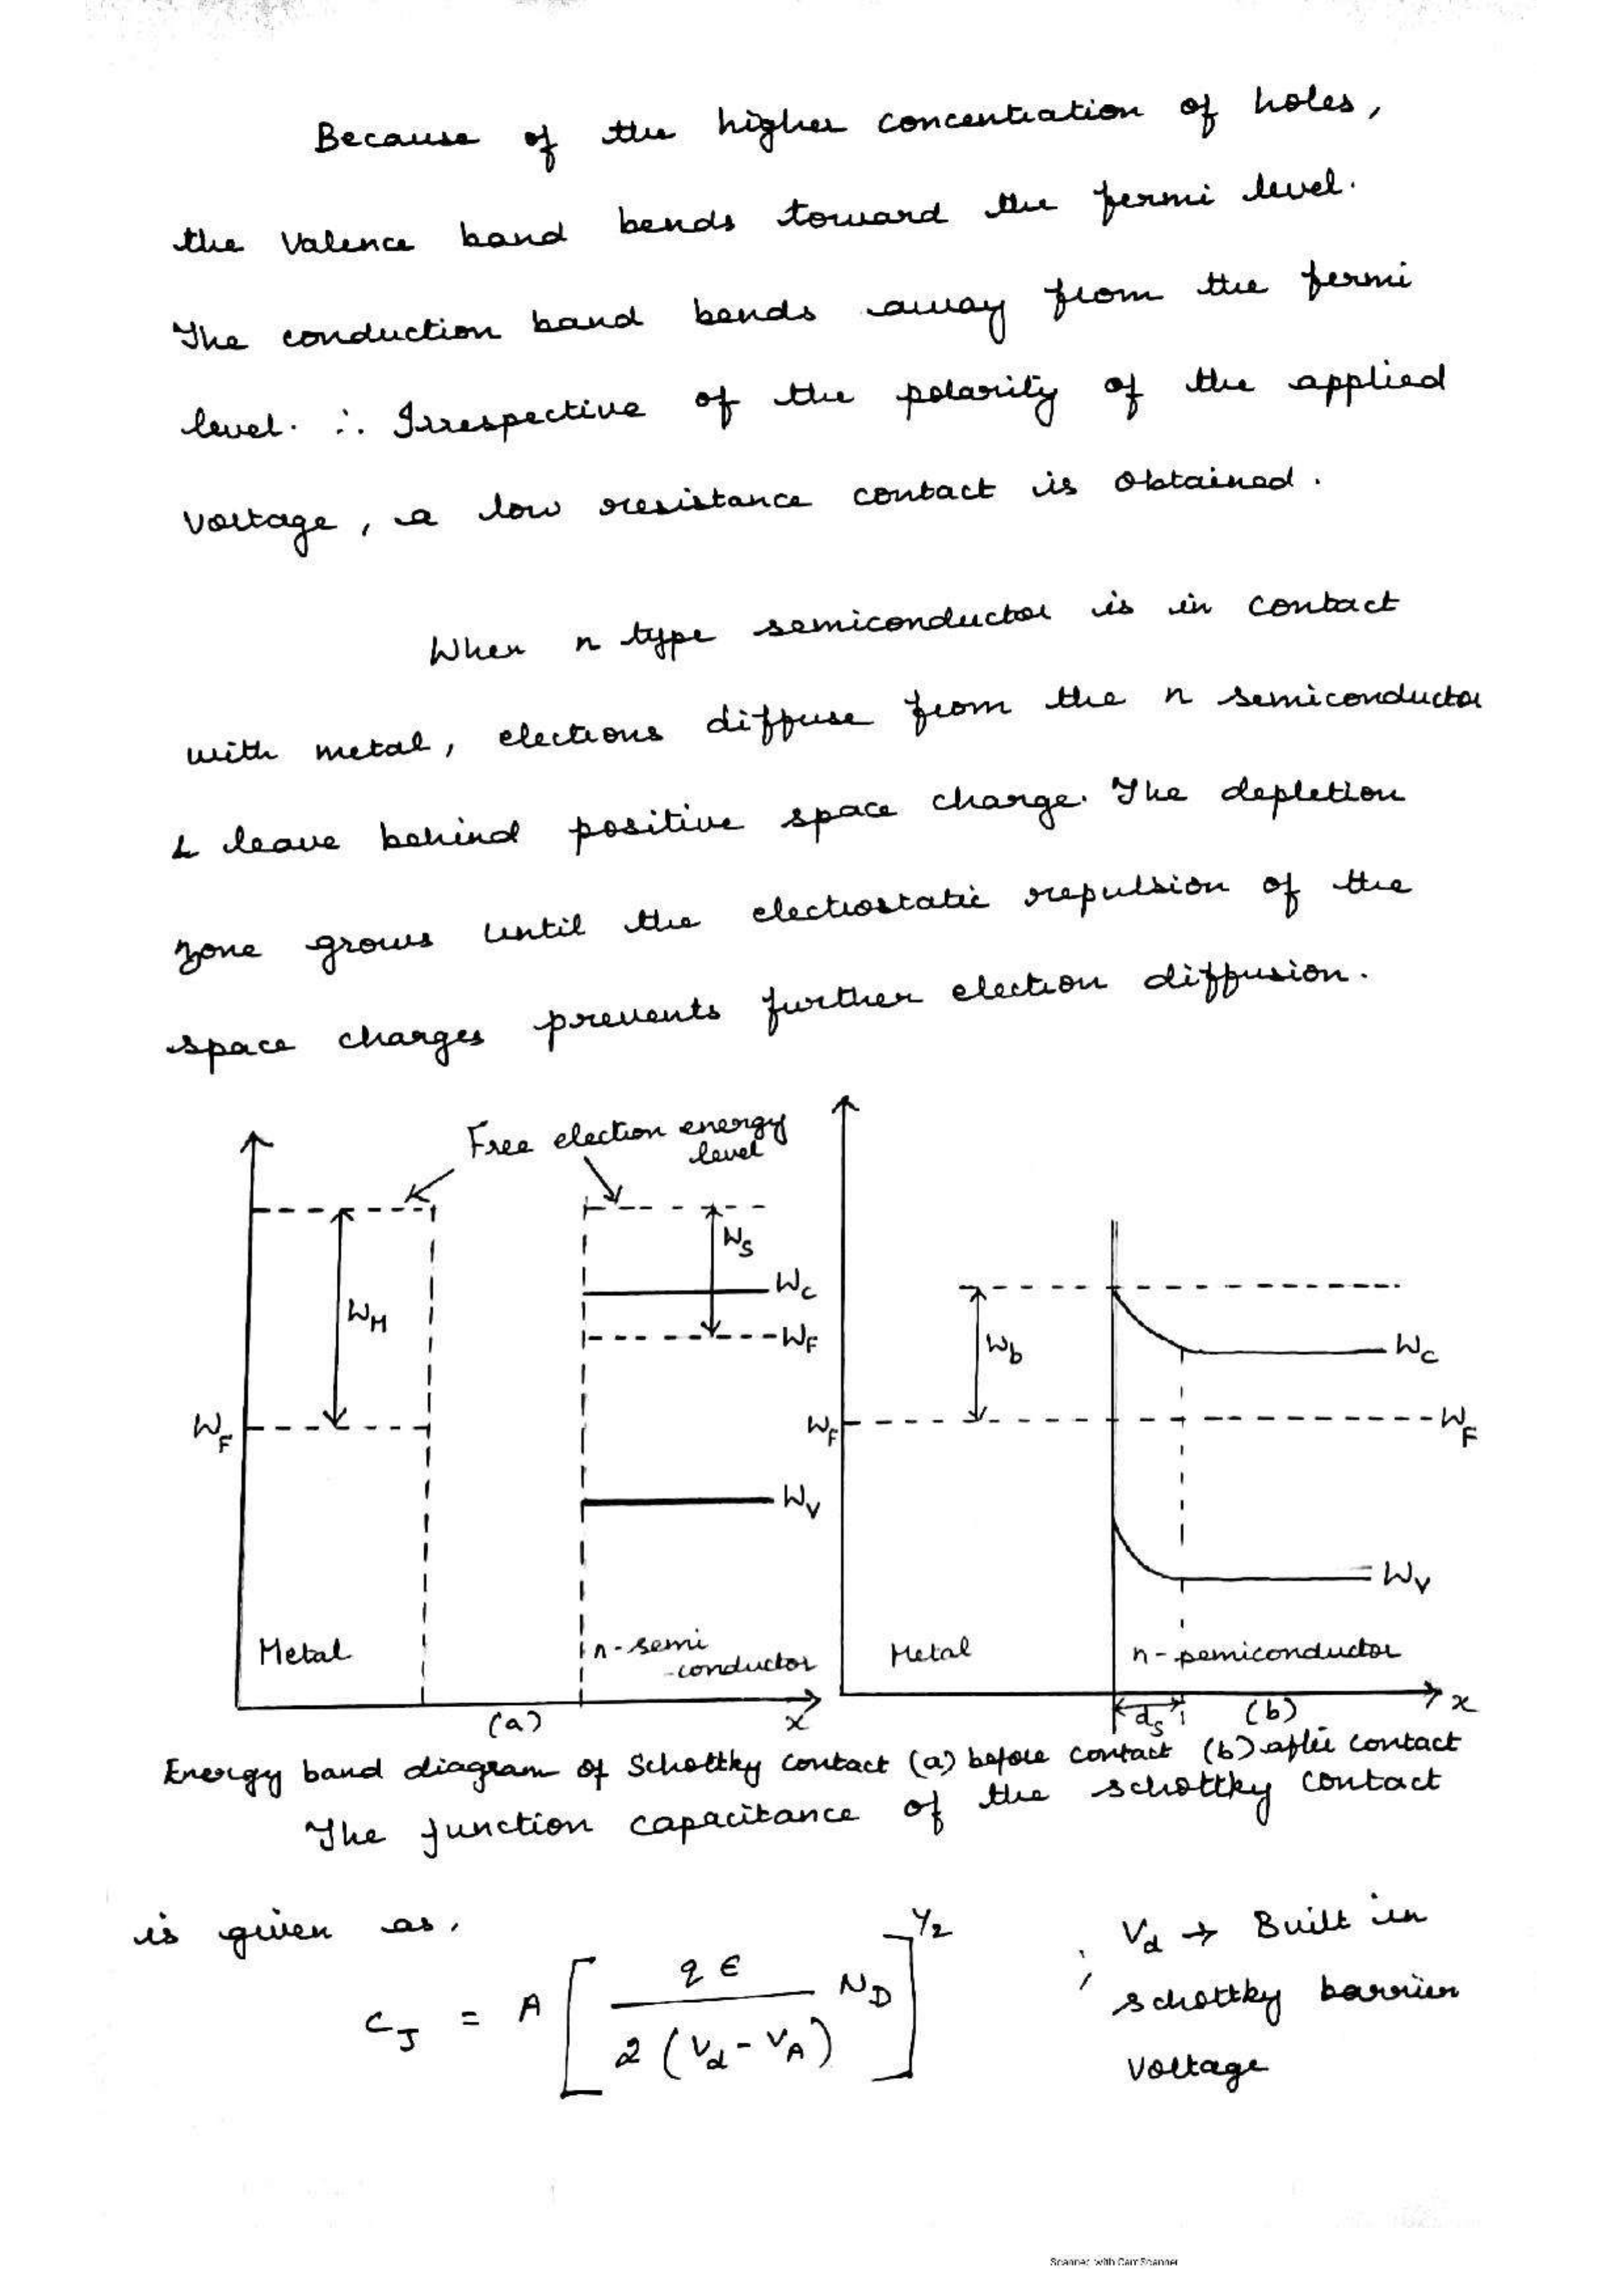 Because of the higher concentration of holes,
the Valence band bends toward the fermi level.
The conduction band bends away from the fermi
level. ∴ Irrespective of the polarity of the applied
voltage, a low resistance contact is obtained.
When n type semiconductor is in contact
with metal, electrons diffuse from the n semiconductor
& leave behind positive space charge. The depletion
zone grows until the electrostatic repulsion of the
space charges prevents further electron diffusion.
Free electron energy
level
W_M
W_F
Metal
W_S
W_C
W_F
W_V
n-semi
-conductor
(a)
x
W_b
W_F
W_C
W_F
W_V
Metal
n-semiconductor
d_s
(b)
x
Energy band diagram of Schottky contact (a) before contact (b) after contact
The junction capacitance of the schottky contact
is given as,
C_J = A [ q ϵ / 2 (V_d - V_A) N_D ]^1/2 ; V_d → Built in
schottky barrier
voltage
Scanned with CamScanner